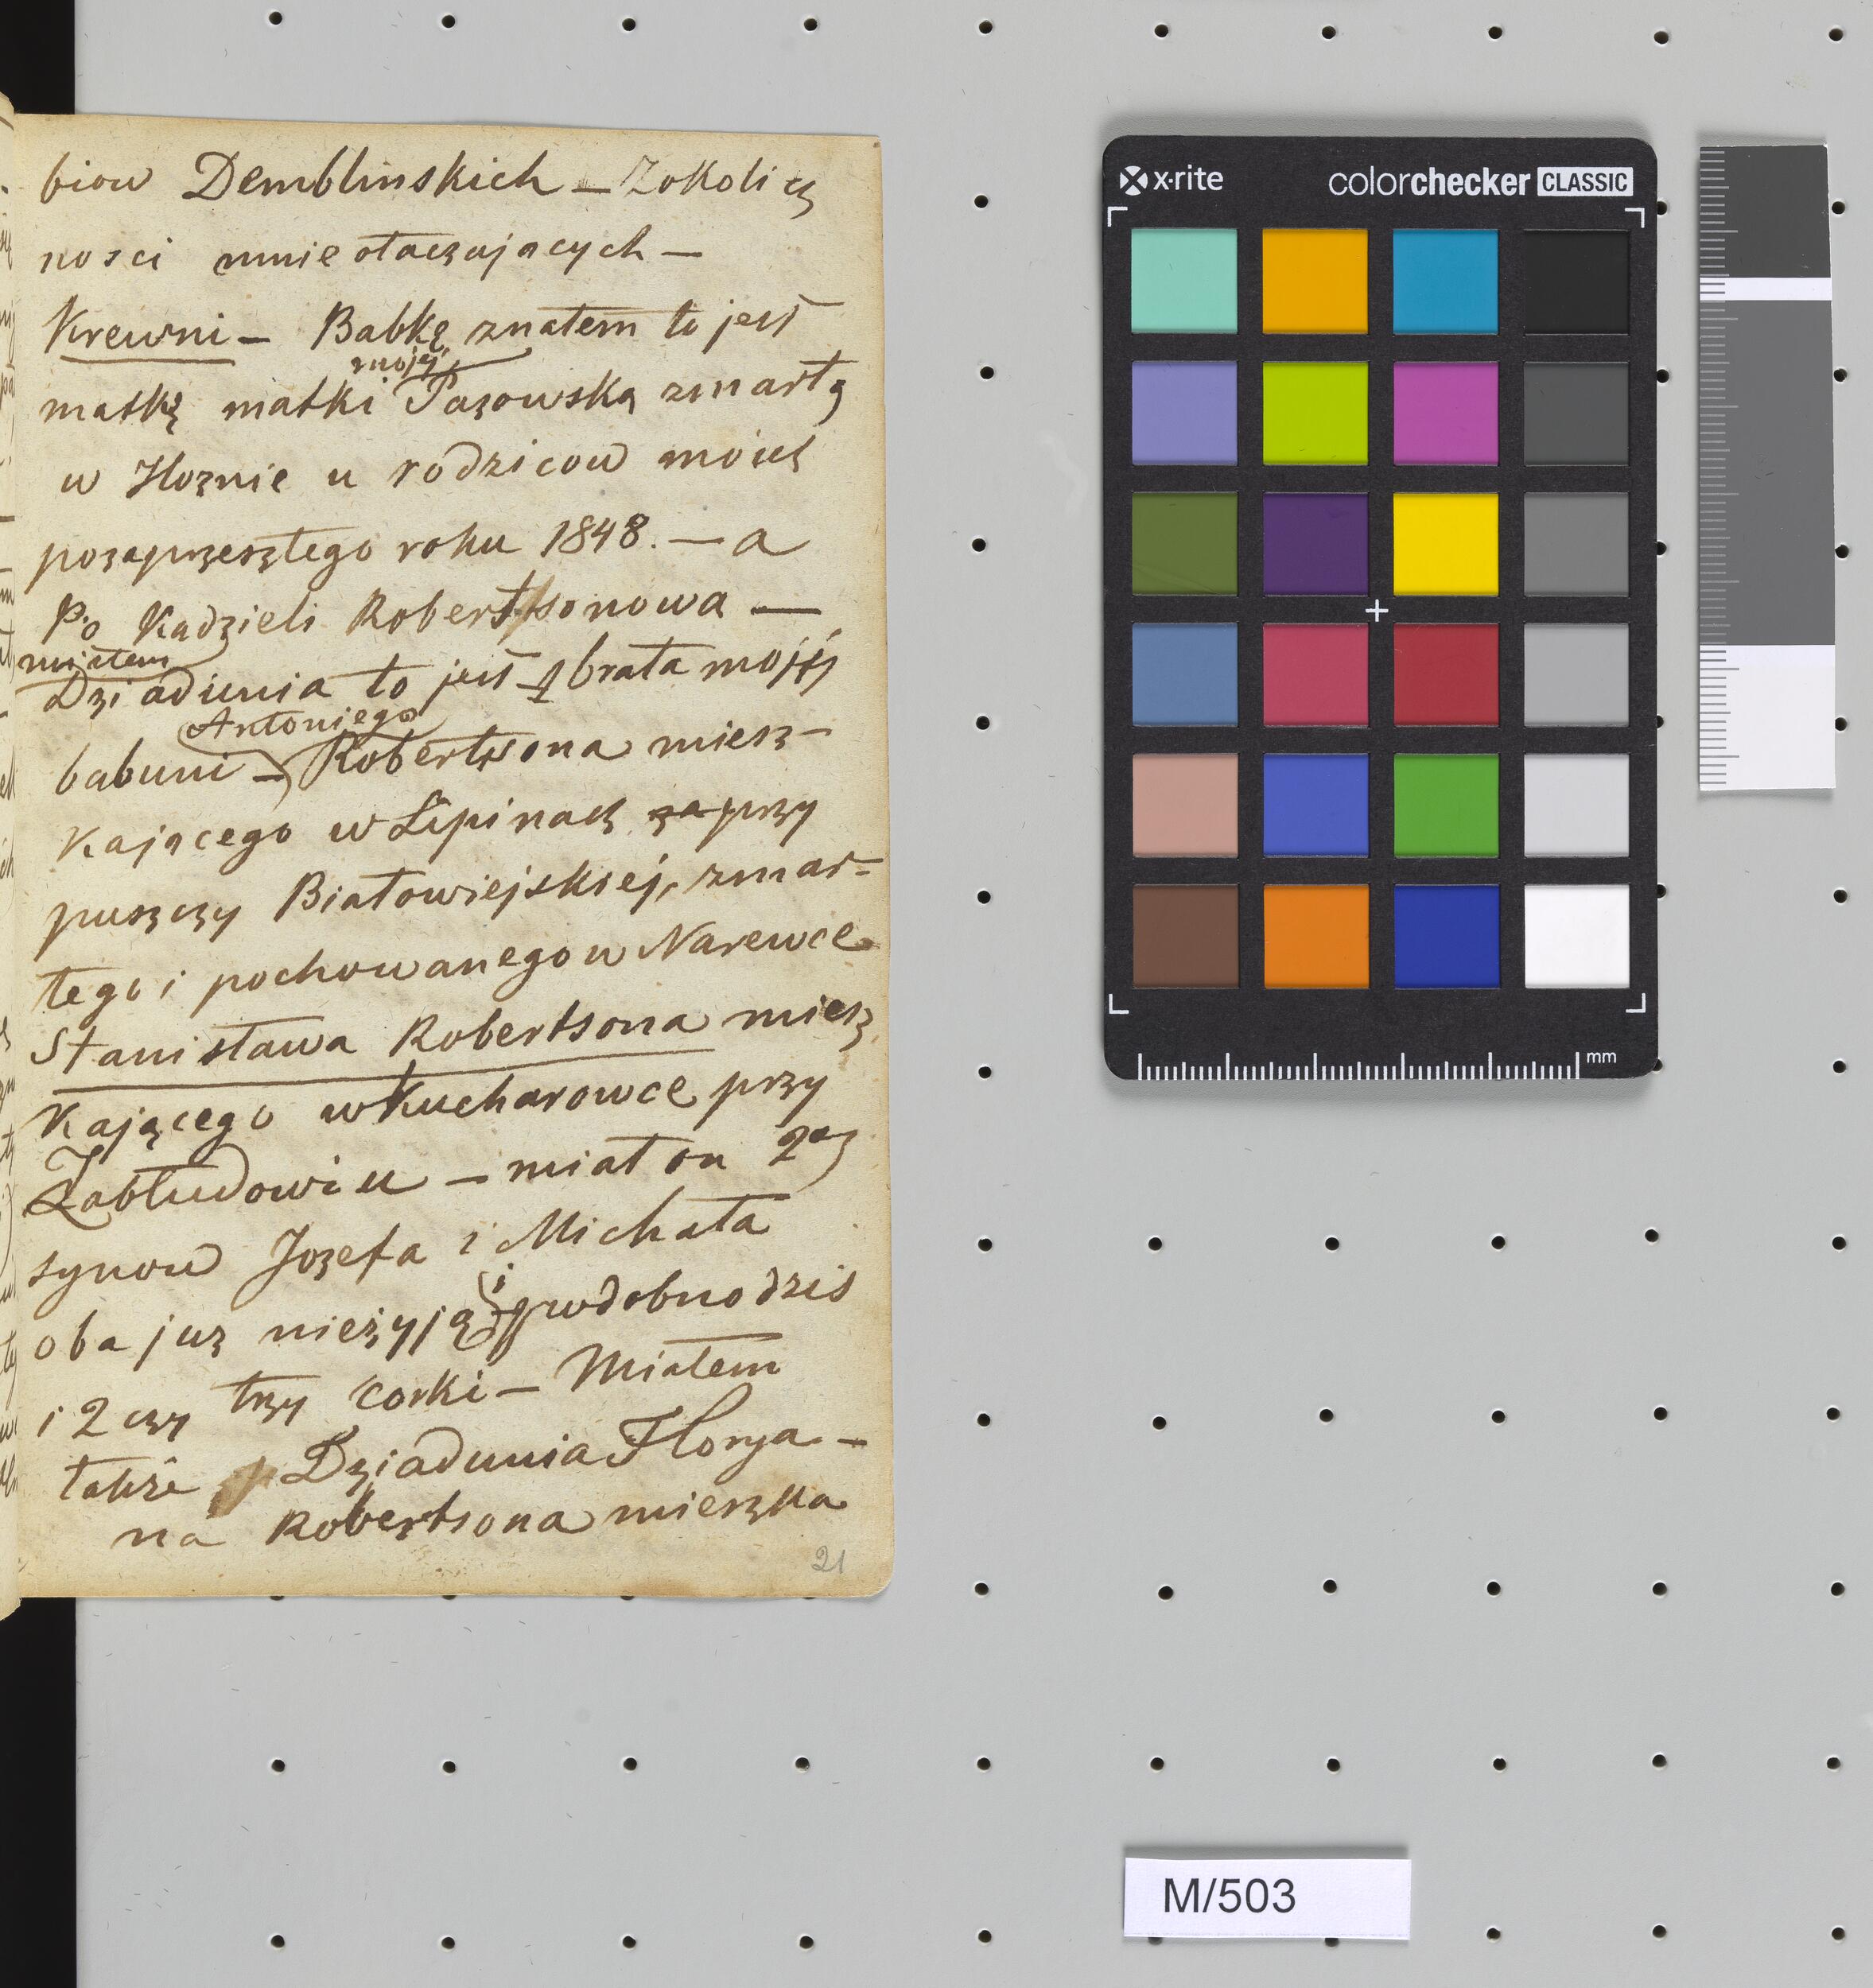 biow Demblinskich – Zokolicz
nosci mnie otaczających –
Krewni – Babkę znałem to jest
mojej
matkę matki Pazowską zmarłą
w Hoznie u rodzicow moich
pozaprzeszłego roku 1848. – a
Po Kądzieli Robertsonowa –
miałem
Dziadunia to jest brata mojéj
Antoniego
babuni – Robertsona miesz-
kającego w Lipinach za przy
puszczy Białowiejskiej, zmar-
łego i pochowanego w Narewce
Stanisława Robertsona miesz
kającego w Kucharowce przy
Zabłudowiu – miał on 2ch
synow Jozefa i Michała
oba juz nieżyją i podobno dzis
i 2 czy trzy corki – Miałem
także Dziadunia Florya-
na Robertsona mieszka
21
x·rite
colorchecker CLASSIC
mm
M/503